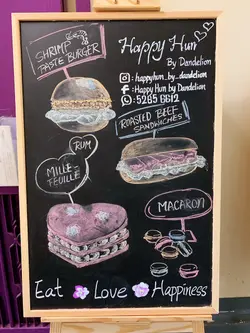 SHRIMP
PASTE BURGER
Happy Hun
By Dandelion
: happyhun_by_dandelion
: Happy Hun by Dandelion
: 5265 6612
ROASTED BEEF
SANDWICHES
RUM
MILLE-
FEUILLE
MACARON
Eat Love Happiness